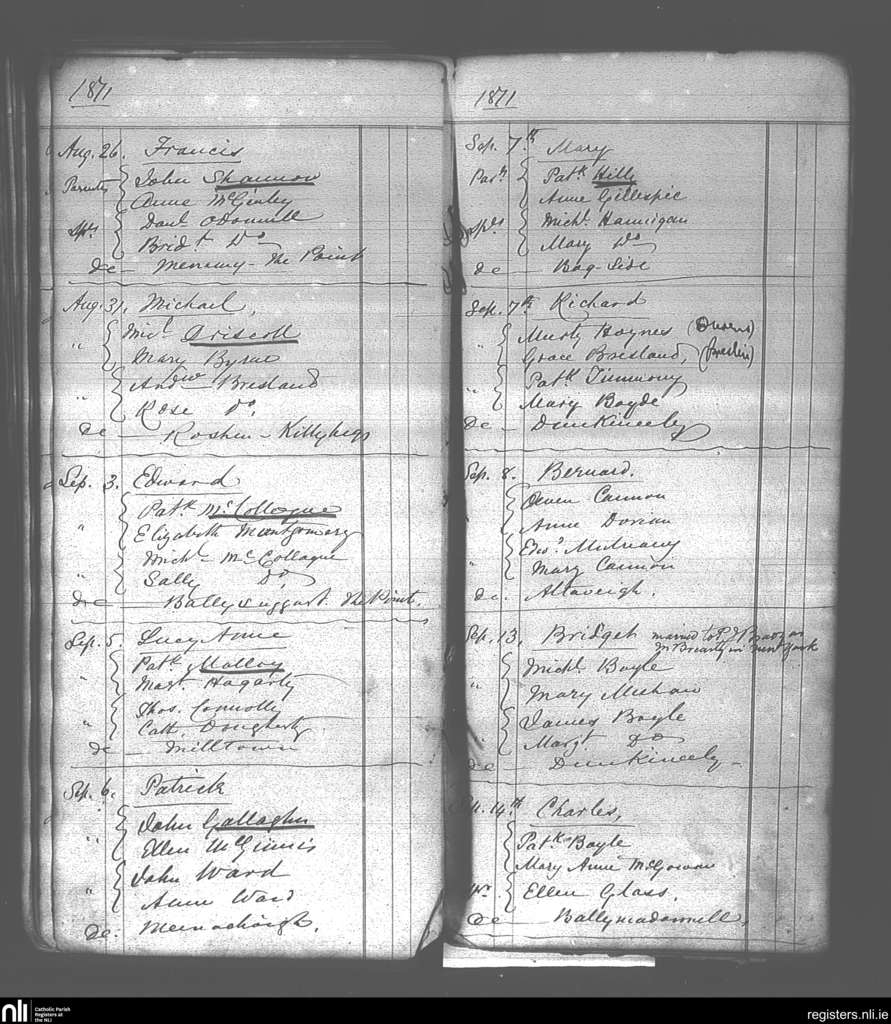 1871
Aug. 26. Francis
Parents John Shannon
Anne McGinley
Spts Danl. O'Donnell
Bridt. Do
de — Meenawy - The Point
Aug. 31. Michael
" Michl. Driscoll
Mary Byrne
" Andw. Bresland
Rose Do.
de — Roshin - Killybegs
Sep. 3. Edward
" Patk. McCollogue
Elizabeth Montgomery
" Michl. McCollogue
Sally Do.
de — Ballysuggart. The Point.
Sep. 5. Lucy Anne
" Patk. Molloy
Margt. Hagarty
" Thos. Connolly
Cath. Dougherty
de — Milltown
Sep. 6. Patrick
" John Gallagher
Ellen McGinnis
" John Ward
Anne Ward
de.
1871
Sep. 7th Mary
Parts Patk. Hilly
Anne Gillespie
Spts Michl. Hannigan
Mary Do
de — Bog-Side
Sep. 7th Richard
" Murty Hoynes (Owens)
Grace Bresland, (Breslin)
" Patk. Timmony
Mary Boyde
de — Dunkineely
Sep. 8. Bernard.
" Owen Cannon
Anne Dorian
" Thos. Mulreany
Mary Cannon
de. Altaveigh.
Sep. 13, Bridget married to P. J.
McBrearty in New York
" Michl. Boyle
Mary Meehan
" James Boyle
Margt. Do
de — Dunkineely -
Sep. 14th Charles,
Patk. Boyle
Mary Anne McGowan
Ellen Glass.
de — Ballymadonnell,
nli
Catholic Parish
Registers at
the NLI
registers.nli.ie